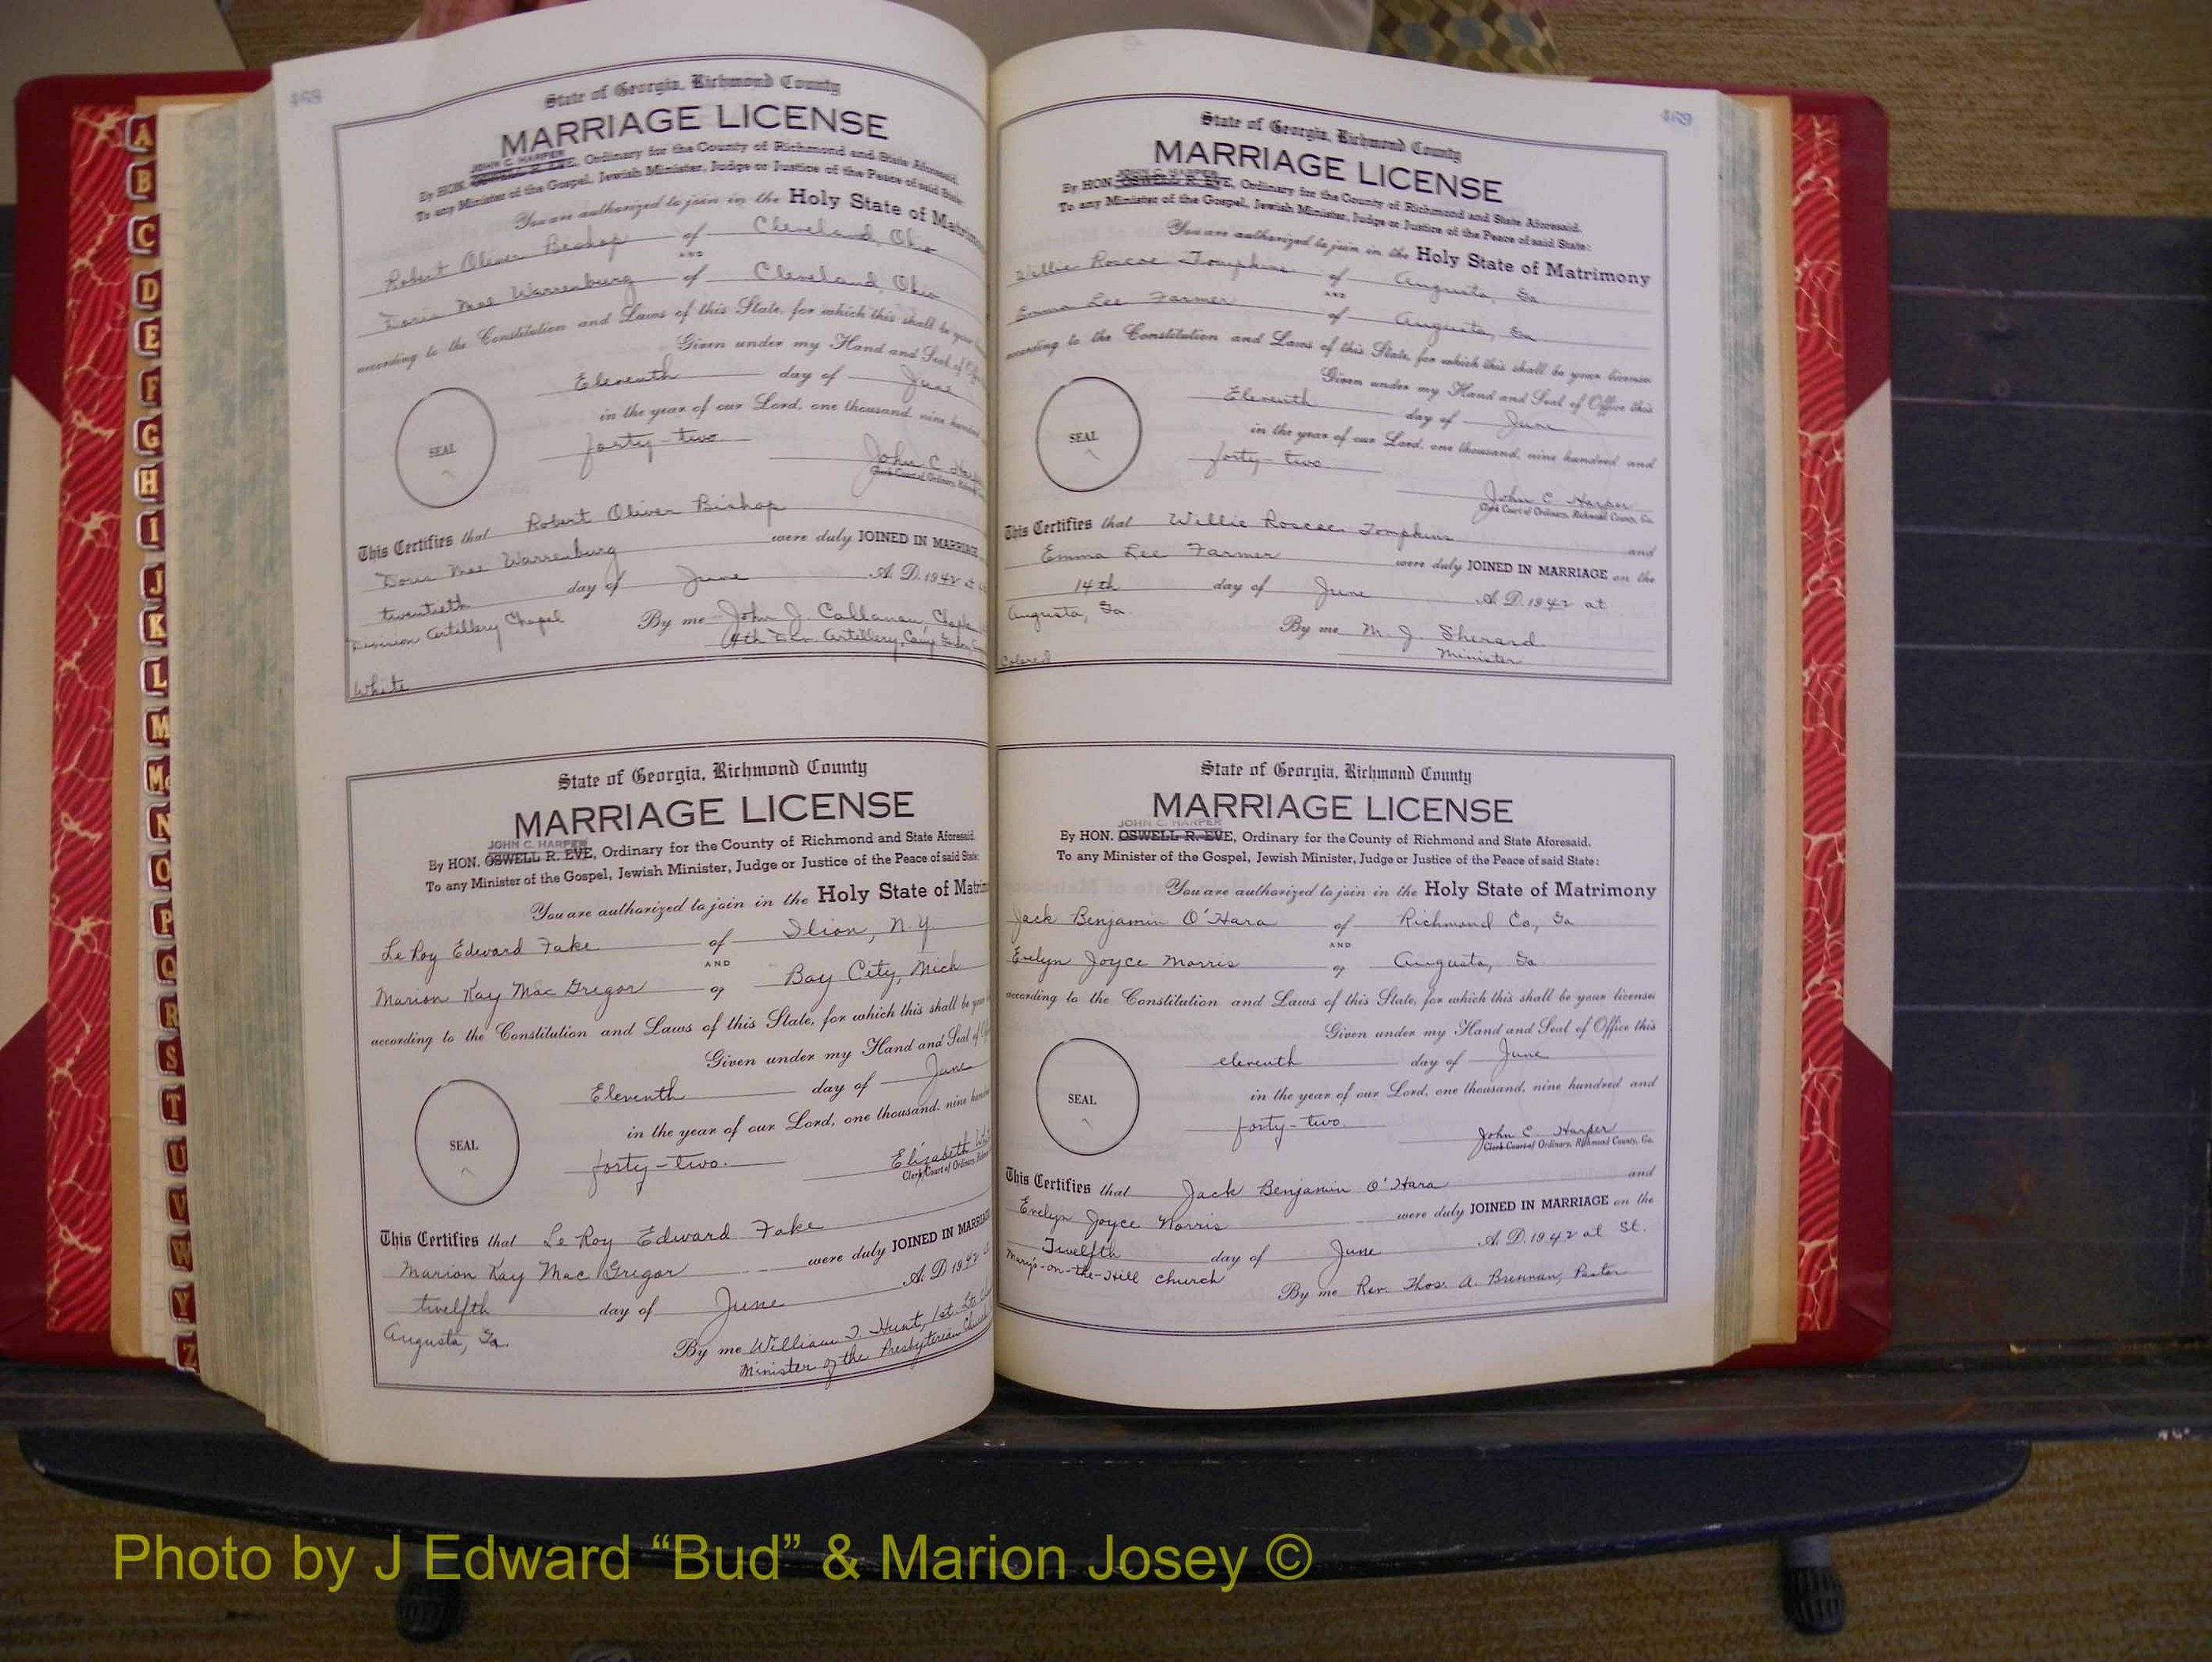 468
State of Georgia, Richmond County
MARRIAGE LICENSE
JOHN C. HARPER
By HON. OSWELL R. EVE, Ordinary for the County of Richmond and State Aforesaid.
To any Minister of the Gospel, Jewish Minister, Judge or Justice of the Peace of said State:
You are authorized to join in the Holy State of Matrimony
Robert Oliver Bishop of Cleveland, Ohio
AND
Doris Mae Warrenburg of Cleveland, Ohio
according to the Constitution and Laws of this State, for which this shall be your
Given under my Hand and Seal of
Eleventh day of June
in the year of our Lord, one thousand, nine hundred
SEAL
forty-two
John C.
Clerk Court of Ordinary,
This Certifies that Robert Oliver Bishop
Doris Mae Warrenburg were duly JOINED IN MARRIAGE
twentieth day of June A. D. 1942 at
Division Artillery Chapel
By me John J. Callanan,
4th Div. Artillery, Camp Gordon,
White
State of Georgia, Richmond County
MARRIAGE LICENSE
JOHN C. HARPER
By HON. OSWELL R. EVE, Ordinary for the County of Richmond and State Aforesaid.
To any Minister of the Gospel, Jewish Minister, Judge or Justice of the Peace of said State:
You are authorized to join in the Holy State of
Le Roy Edward Fake of Ilion, N.Y.
AND
Marion Kay Mac Gregor of Bay City, Mich
according to the Constitution and Laws of this State, for which this shall be
Given under my Hand and Seal of
Eleventh day of June
in the year of our Lord, one thousand, nine
SEAL
forty-two.
Elizabeth
Clerk Court of Ordinary,
This Certifies that Le Roy Edward Fake
Marion Kay Mac Gregor were duly JOINED IN MARRIAGE
twelfth day of June A. D. 1942
Augusta, Ga.
By me William T. Hunt, 1st. Lt.
Minister of the Presbyterian
469
State of Georgia, Richmond County
MARRIAGE LICENSE
JOHN C. HARPER
By HON. OSWELL R. EVE, Ordinary for the County of Richmond and State Aforesaid.
To any Minister of the Gospel, Jewish Minister, Judge or Justice of the Peace of said State:
You are authorized to join in the Holy State of Matrimony
Willie Roscoe Tompkins of Augusta, Ga.
AND
Emma Lee Farmer of Augusta, Ga.
according to the Constitution and Laws of this State, for which this shall be your license
Given under my Hand and Seal of Office this
Eleventh day of June
in the year of our Lord, one thousand, nine hundred and
SEAL
forty-two
John C Harper
Clerk Court of Ordinary, Richmond County, Ga.
This Certifies that Willie Roscoe Tompkins and
Emma Lee Farmer were duly JOINED IN MARRIAGE on the
14th day of June A. D. 1942 at
Augusta, Ga.
By me M. J. Sherard
Minister
Colored
State of Georgia, Richmond County
MARRIAGE LICENSE
JOHN C. HARPER
By HON. OSWELL R. EVE, Ordinary for the County of Richmond and State Aforesaid.
To any Minister of the Gospel, Jewish Minister, Judge or Justice of the Peace of said State:
You are authorized to join in the Holy State of Matrimony
Jack Benjamin O'Hara of Richmond Co, Ga
AND
Evelyn Joyce Morris of Augusta, Ga
according to the Constitution and Laws of this State, for which this shall be your license
Given under my Hand and Seal of Office this
eleventh day of June
in the year of our Lord, one thousand, nine hundred and
SEAL
forty-two.
John C. Harper
Clerk Court of Ordinary, Richmond County, Ga.
This Certifies that Jack Benjamin O'Hara and
Evelyn Joyce Morris were duly JOINED IN MARRIAGE on the
Twelfth day of June A. D. 1942 at St.
Mary's-on-the-Hill church
By me Rev. Thos. A. Brennan, Pastor
A
B
C
D
E
F
G
H
I
J
K
L
M
Mc
N
O
P
Q
R
S
T
U
V
W
Y
Z
Photo by J Edward “Bud” & Marion Josey ©